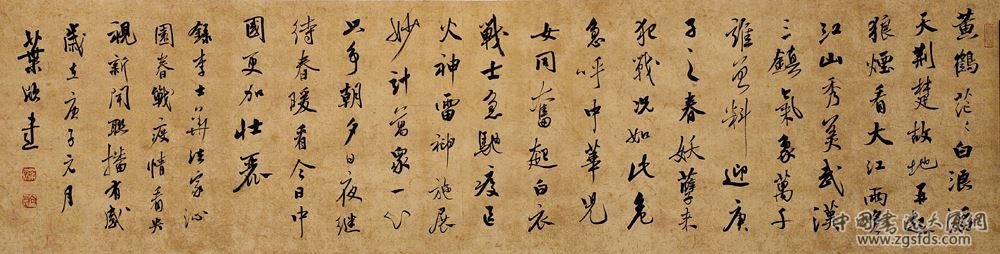 黄鹤茫茫白浪滔
天荆楚故地再起
狼烟看大江两岸
江山秀美武汉
三镇气象万千
谁曾料迎庚
子之春妖孽来
犯战况如此危
急呼中华儿
女同奋起白衣
战士急驰疫区
火神雷神施展
妙计万众一心
只争朝夕日夜继
待春暖看今日中
国更加壮丽
录李士 法家沁
园春战疫情看央
视新闻联播有感
岁在庚子元月
叶
中国书法大展网
www.zgsfds.com